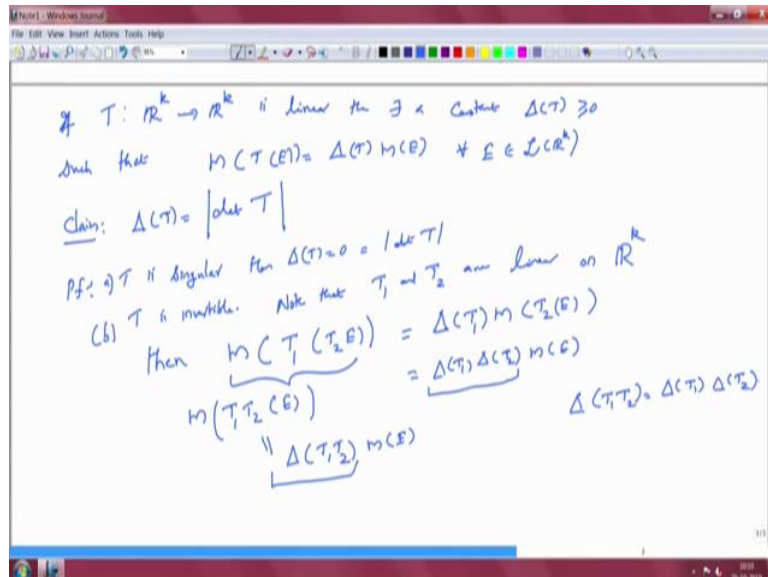 Note1 - Windows Journal
File Edit View Insert Actions Tools Help
If T: ℝ^k → ℝ^k is linear then ∃ a constant Δ(T) ≥ 0
such that m(T(E)) = Δ(T) m(E) ∀ E ∈ ℒ(ℝ^k)
Claim: Δ(T) = |det T|
Pf: a) T is singular then Δ(T) = 0 = |det T|
(b) T is invertible. Note that T₁ and T₂ are linear on ℝ^k
then m(T₁(T₂E)) = Δ(T₁) m(T₂(E))
= Δ(T₁) Δ(T₂) m(E)
m(T₁T₂(E))
Δ(T₁T₂) = Δ(T₁) Δ(T₂)
|| Δ(T₁T₂) m(E)
3/3